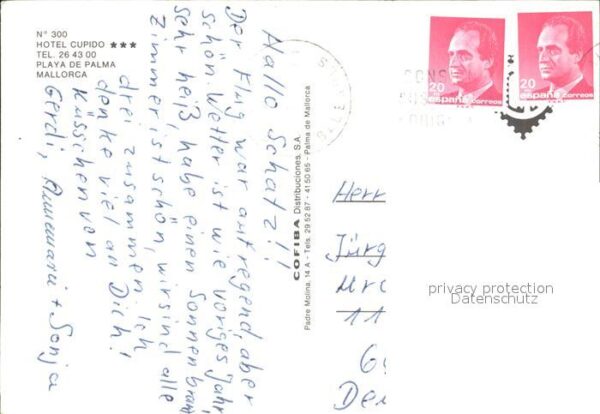 N° 300
HOTEL CUPIDO ★★★
TEL. 26 43 00
PLAYA DE PALMA
MALLORCA
Hallo Schatz!!
Der Flug war aufregend, aber
schön. Wetter ist wie voriges Jahr
sehr heiß, habe einen Sonnenbrand
Zimmer ist schön, wir sind alle
drei zusammen. Ich
denke viel an Dich!
Küsschen von
Gerdi, Annemarie + Sonja
COFIBA Distribuciones, S.A.
Padre Molina, 14 A - Tels. 29 52 87 - 41 50 65 - Palma de Mallorca
20
españa correos
20
españa correos
CONS
Herr
Jürg
11
De
privacy protection
Datenschutz